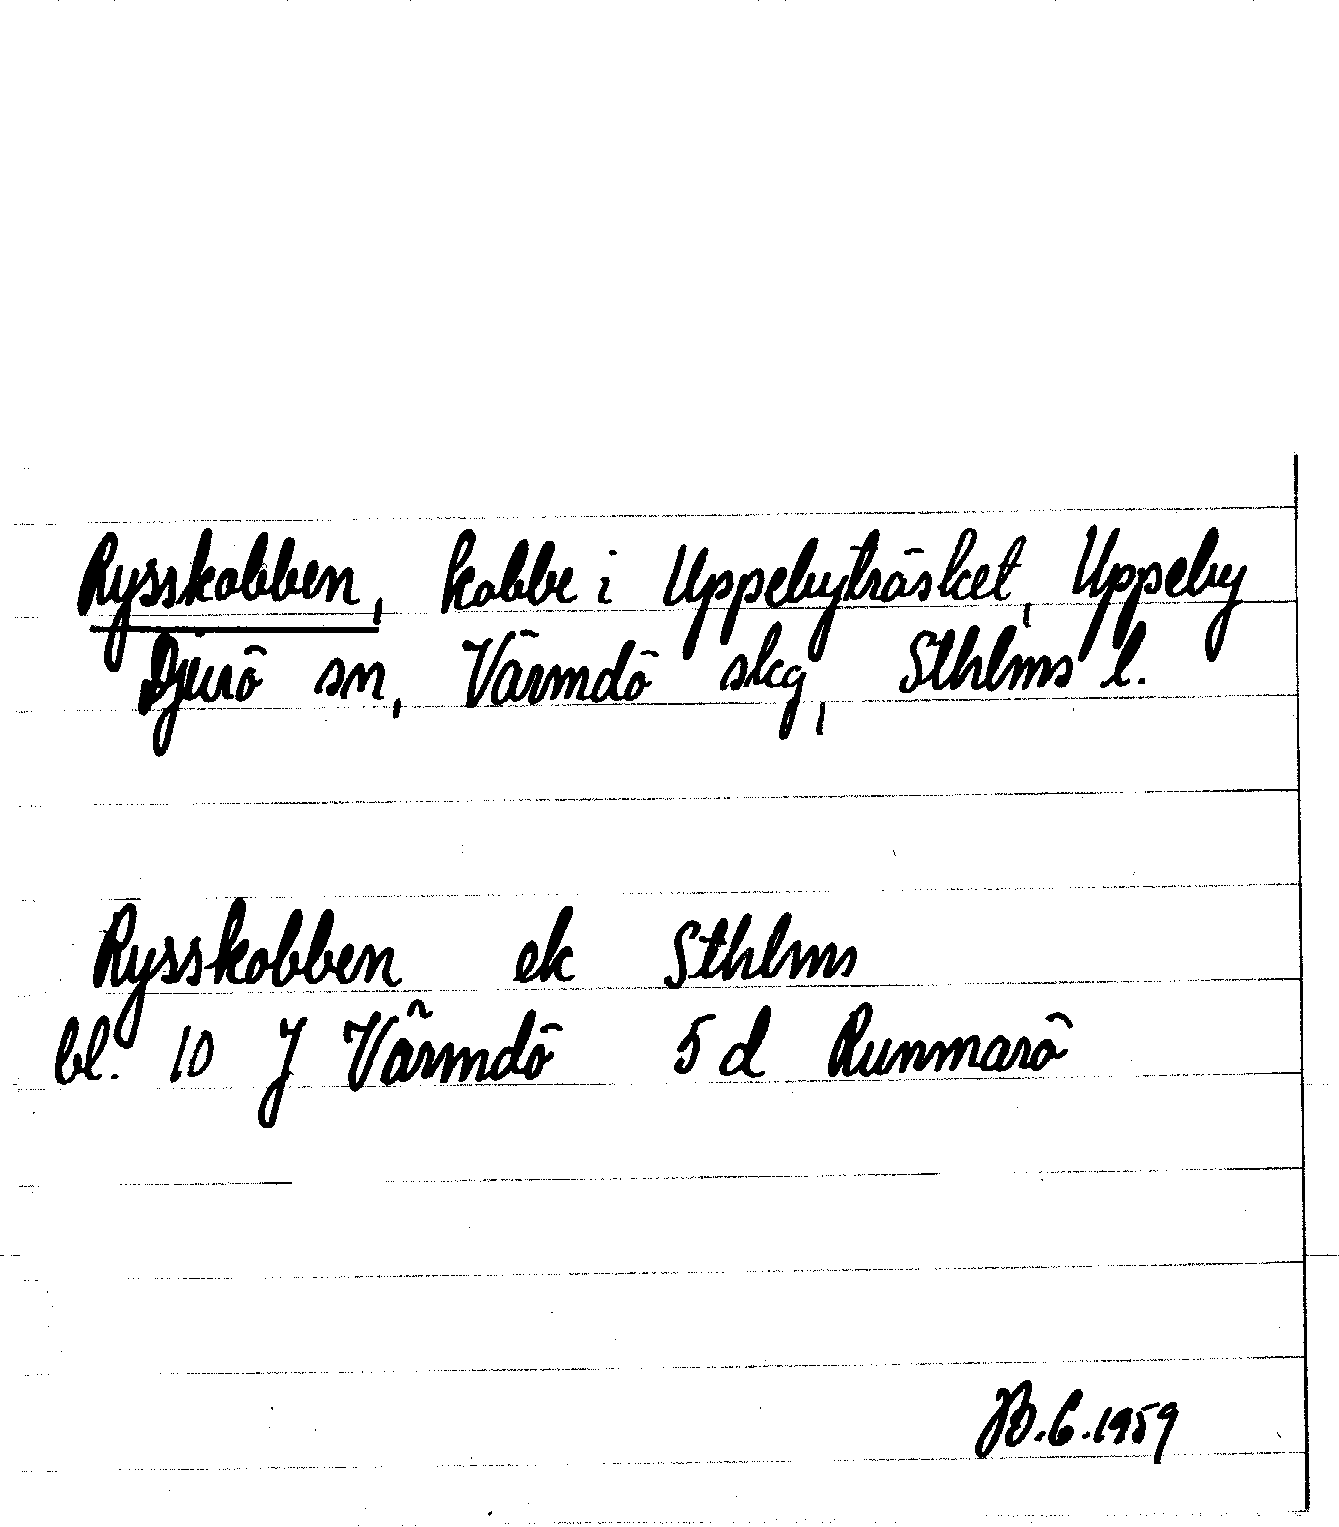 Rysskobben, kobbe i Uppebyträsket, Uppeby
Djurö sn, Värmdö skg, Sthlms l.
Rysskobben ek Sthlms
bl. 10 J Värmdö 5 d Runmarö
JB.6.1959